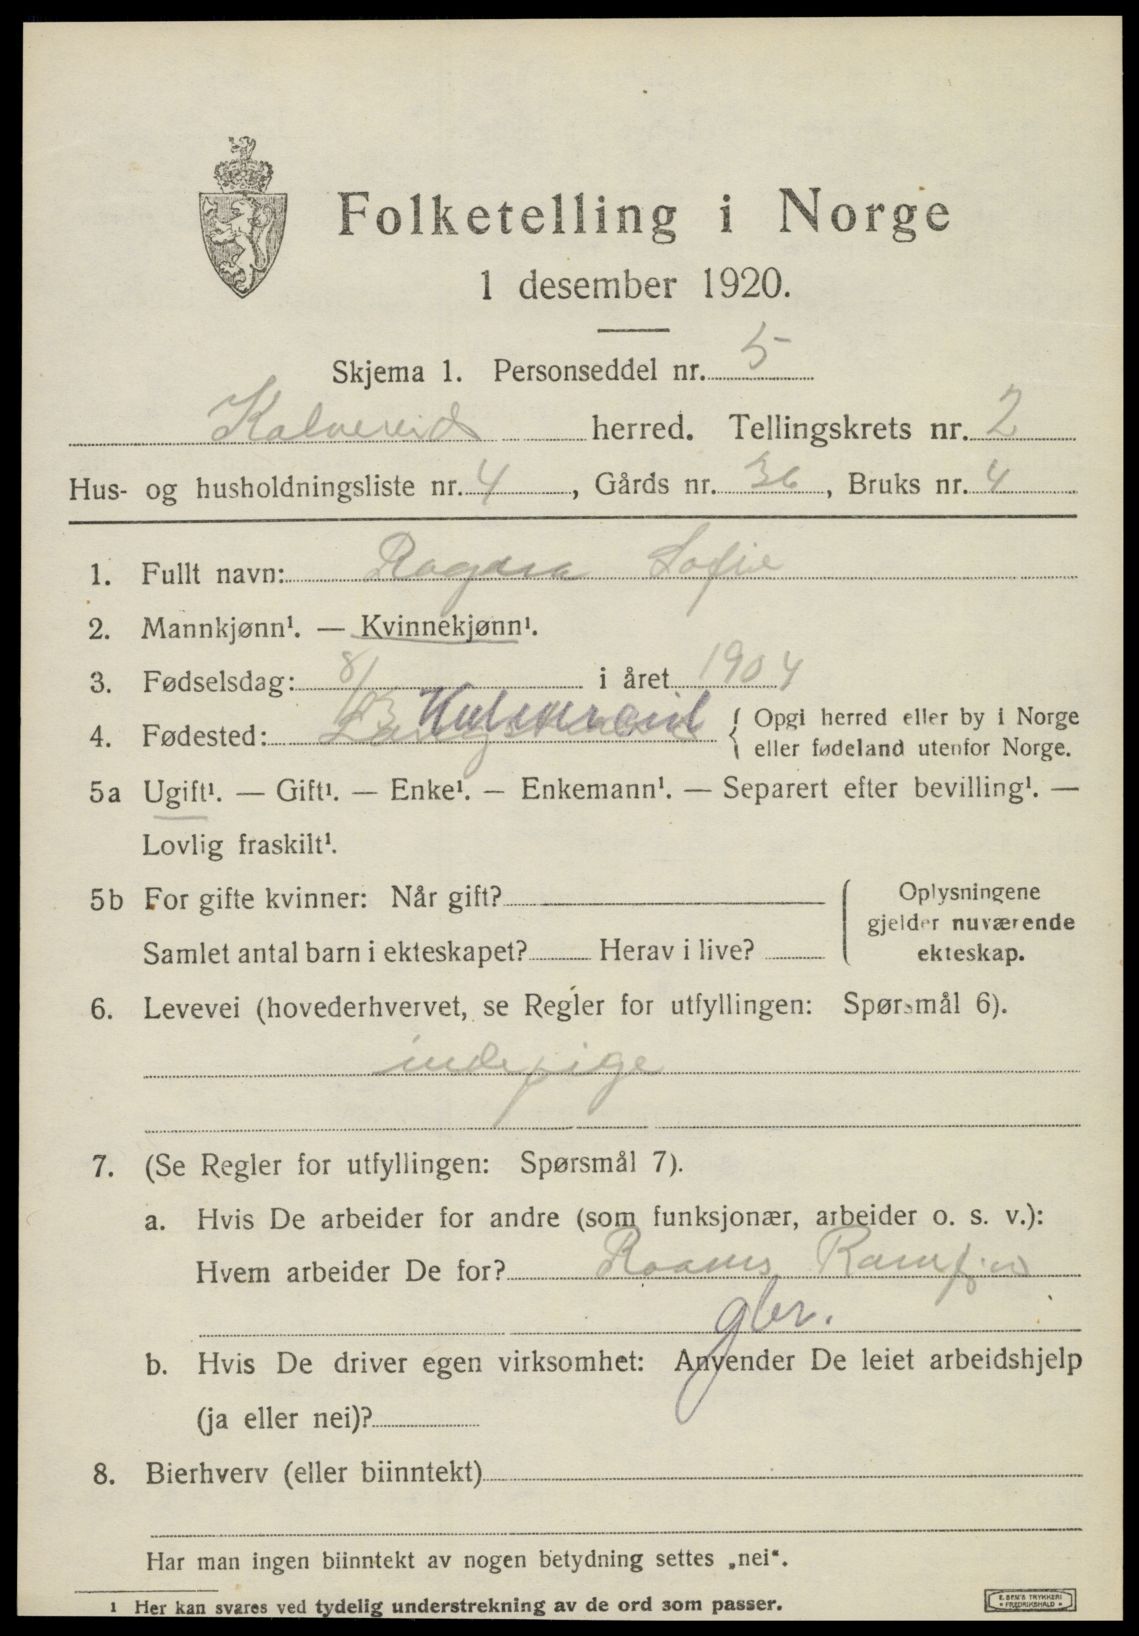 Folketelling i Norge
1 desember 1920.
Skjema 1. Personseddel nr. 5
Kalvereid herred. Tellingskrets nr. 2
Hus- og husholdningsliste nr. 4, Gårds nr. 36, Bruks nr. 4
1. Fullt navn: Ragna Sofie
2. Mannkjønn¹. — Kvinnekjønn¹.
3. Fødselsdag: 8/ i året 1904
4. Fødested: { Opgi herred eller by i Norge
eller fødeland utenfor Norge.
5a Ugift¹. — Gift¹. — Enke¹. — Enkemann¹. — Separert efter bevilling¹. —
Lovlig fraskilt¹.
5b For gifte kvinner: Når gift?
Oplysningene
gjelder nuværende
ekteskap.
Samlet antal barn i ekteskapet? Herav i live?
6. Levevei (hovederhvervet, se Regler for utfyllingen: Spørsmål 6).
indepige
7. (Se Regler for utfyllingen: Spørsmål 7).
a. Hvis De arbeider for andre (som funksjonær, arbeider o. s. v.):
Hvem arbeider De for?
gbr.
b. Hvis De driver egen virksomhet: Anvender De leiet arbeidshjelp
(ja eller nei)?
8. Bierhverv (eller biinntekt)
Har man ingen biinntekt av nogen betydning settes „nei“.
1 Her kan svares ved tydelig understrekning av de ord som passer.
E. SEM'S TRYKKERI
FREDRIKSHALD